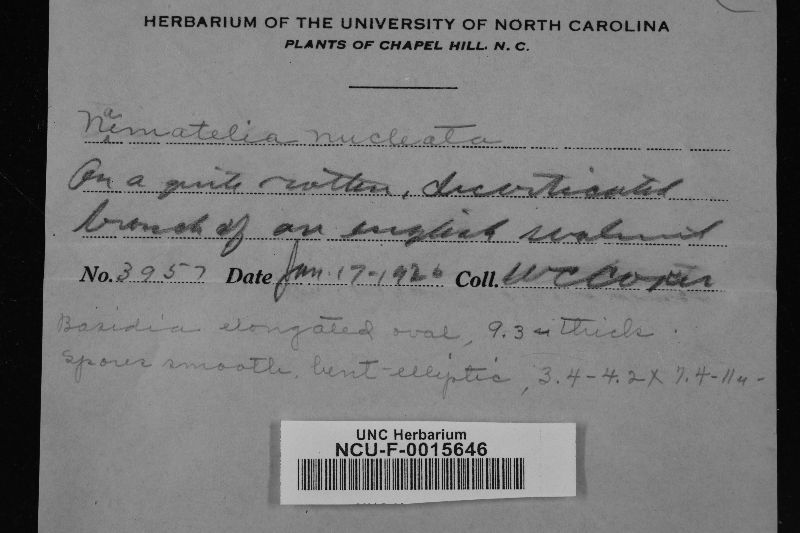 HERBARIUM OF THE UNIVERSITY OF NORTH CAROLINA
PLANTS OF CHAPEL HILL, N. C.
Naematelia nucleata
On a quite rotten, decorticated
branch of an english walnut
No. 3957 Date Jan. 17-1920 Coll. W C Coker
Basidia elongated oval, 9.3 µ thick.
Spores smooth, bent-elliptic, 3.4-4.2 X 7.4-11µ-
UNC Herbarium
NCU-F-0015646